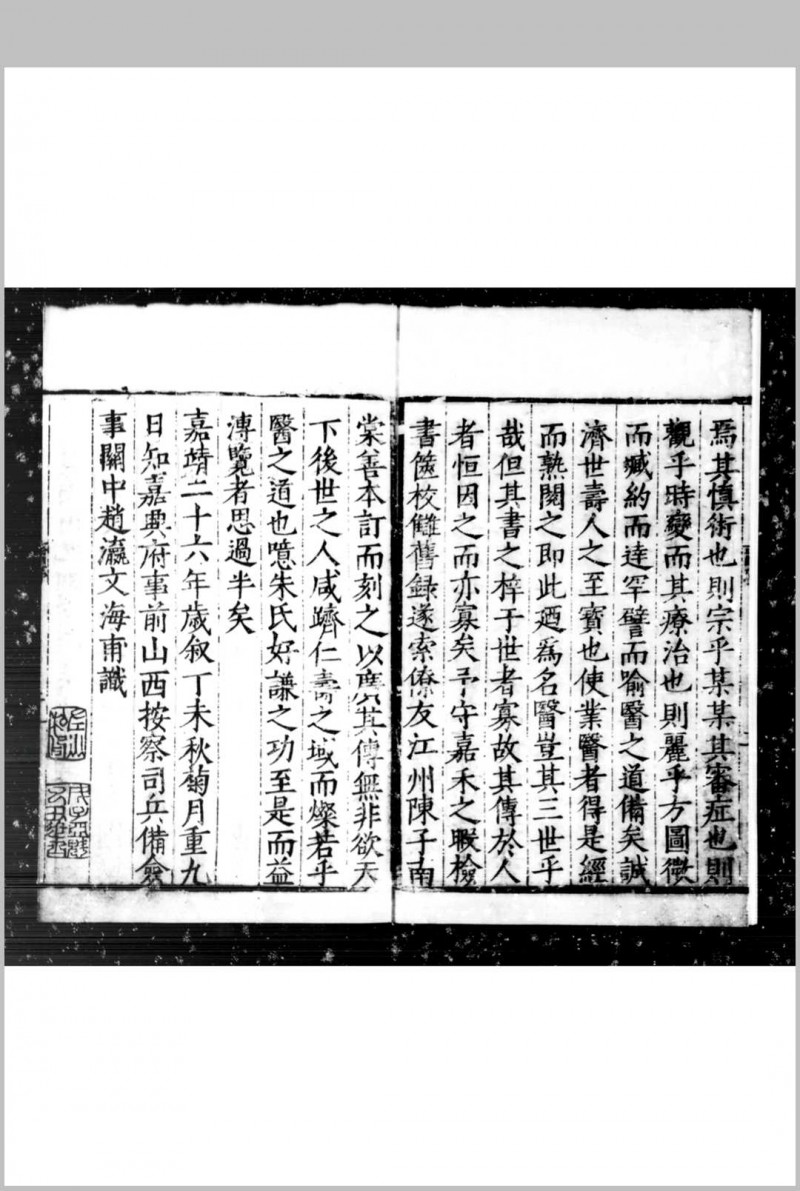 焉其慎術也則宗乎某某其審症也則
觀乎時變而其療治也則麗乎方圖微
而臧約而達罕譬而喻醫之道備矣誠
濟世壽人之至寶也使業醫者得是經
而熟閱之即此廼為名醫豈其三世乎
哉但其書之梓于世者寡故其傳於人
者恒因之而亦寡矣予守嘉禾之暇檢
書篋校讎舊録遂索僚友江州陳子南
棠善本訂而刻之以廣其傳無非欲天
下後世之人咸躋仁壽之域而燦若乎
醫之道也噫朱氏好謙之功至是而益
溥覽者思過半矣
嘉靖二十六年歲叙丁未秋菊月重九
日知嘉興府事前山西按察司兵備僉
事關中趙瀛文海甫識